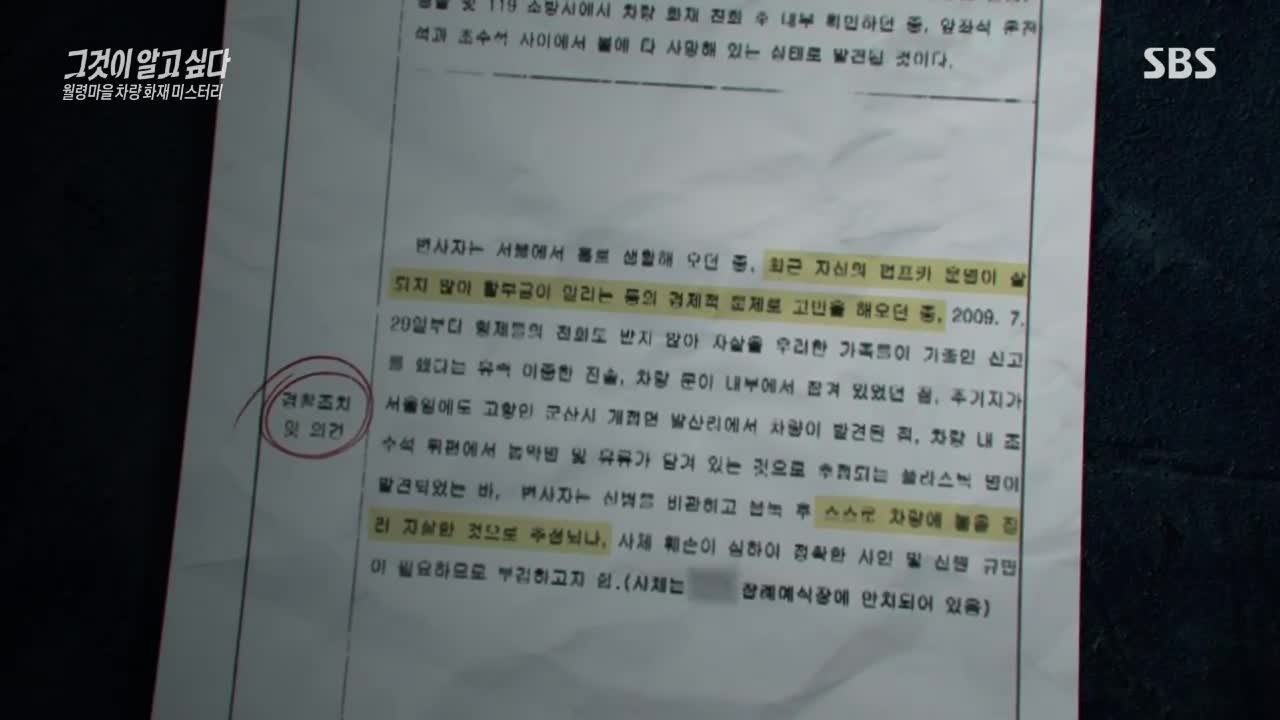 그것이 알고 싶다
월령마을 차량 화재 미스터리
SBS
및 119 소방서에서 차량 화재 진화 후 내부 확인하던 중, 앞좌석 운전
석과 조수석 사이에서 불에 타 사망해 있는 상태로 발견된 것이다.
변사자는 서울에서 홀로 생활해 오던 중, 최근 자신의 덤프카 운영이 잘
되지 않아 할부금이 밀리는 등의 경제적 문제로 고민을 해오던 중, 2009. 7.
29일부터 형제들의 전화도 받지 않아 자살을 우려한 가족들이 가출인 신고
를 했다는 유족 이종한 진술, 차량 문이 내부에서 잠겨 있었던 점, 주거지가
경찰조치
및 의견
서울임에도 고향인 군산시 개정면 발산리에서 차량이 발견된 점, 차량 내 조
수석 뒤편에서 농약병 및 유류가 담겨 있는 것으로 추정되는 플라스틱 병이
발견되었는 바, 변사자는 신병을 비관하고 음독 후 스스로 차량에 불을 질
러 자살한 것으로 추정되나, 사체 훼손이 심하여 정확한 사인 및 신원 규명
이 필요하므로 부검하고자 함.(사체는 장례예식장에 안치되어 있음)